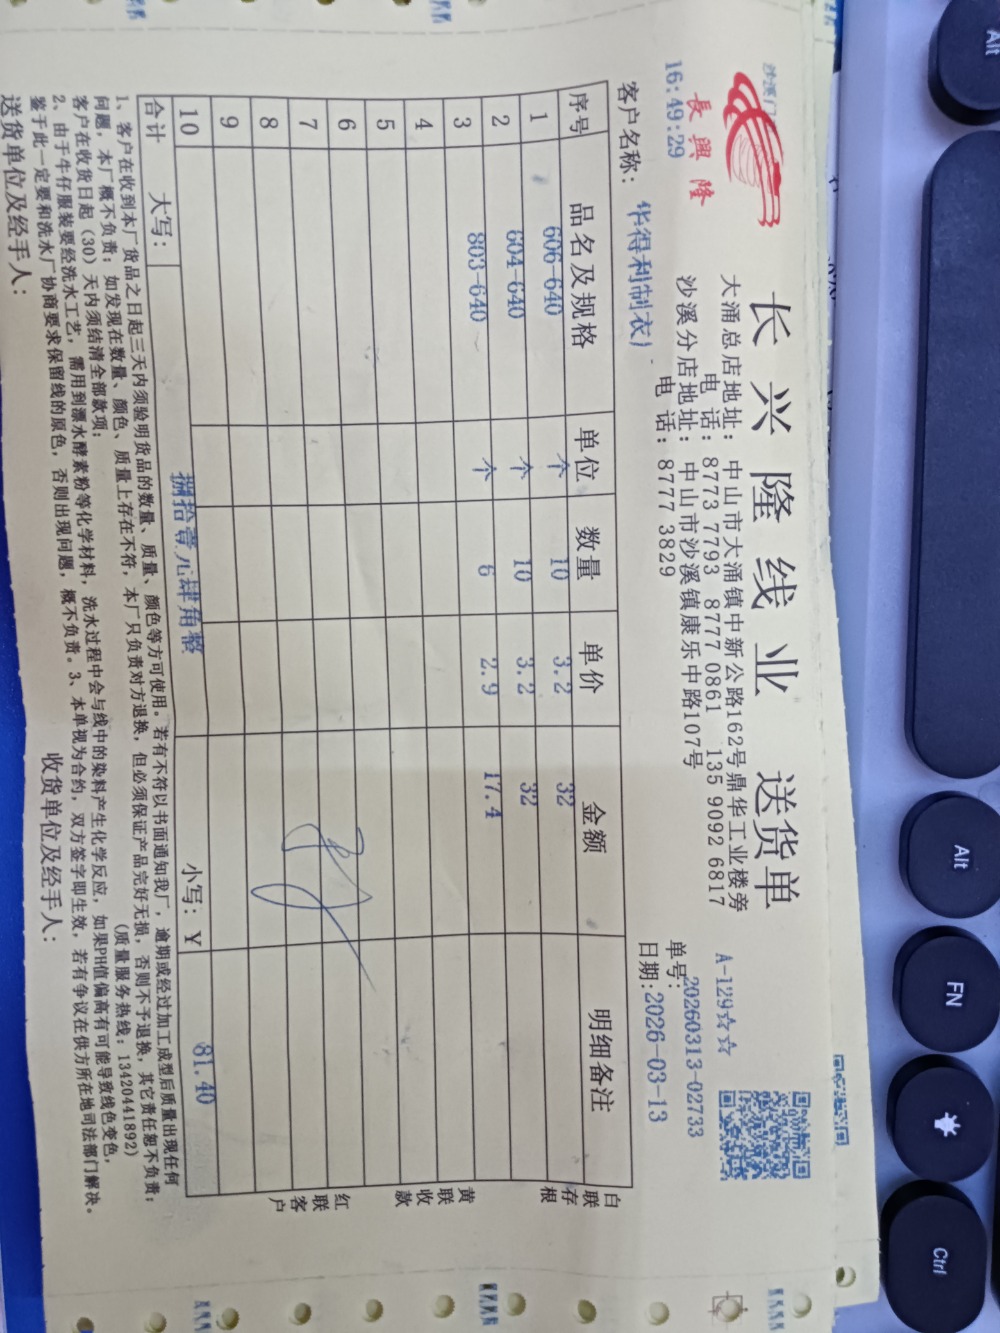 長興隆
16:49:29
长兴隆线业 送货单
大涌总店地址：中山市大涌镇中新公路162号鼎华工业楼旁
电话：8773 7793 8777 0861 135 9092 6817
沙溪分店地址：中山市沙溪镇康乐中路107号
电话：8777 3829
A-129☆☆
单号:20260313-02733
日期:2026-03-13
客户名称：华得利制衣）
序号 品名及规格 单位 数量 单价 金额 明细备注
1 606-640 个 10 3.2 32
2 604-640 个 10 3.2 32
3 803-640 个 6 2.9 17.4
4
5
6
7
8
9
10
合计 大写： 捌拾壹元肆角整 小写：Y 81.40
白联存根
黄联收款
红联客户
1、客户在收到本厂货品之日起三天内须验明货品的数量、质量、颜色等方可使用。若有不符以书面通知我厂，逾期或经过加工成型后质量出现任何
问题，本厂概不负责；如发现在数量、颜色、质量上存在不符，本厂只负责对方退换，但必须保证产品完好无损，否则不予退换，其它责任恕不负责；
客户在收货日起（30）天内须结清全部款项； (质量服务热线：13420441892)
2、由于牛仔服装要经洗水工艺，需用到漂水酵素粉等化学材料，洗水过程中会与线中的染料产生化学反应，如果PH值偏高有可能导致线色变色，
鉴于此一定要和洗水厂协商要求保留线的原色，否则出现问题，概不负责。3、本单视为合约，双方签字即生效，若有争议在供方所在地司法部门解决。
送货单位及经手人： 收货单位及经手人：
Alt
Alt
FN
Ctrl